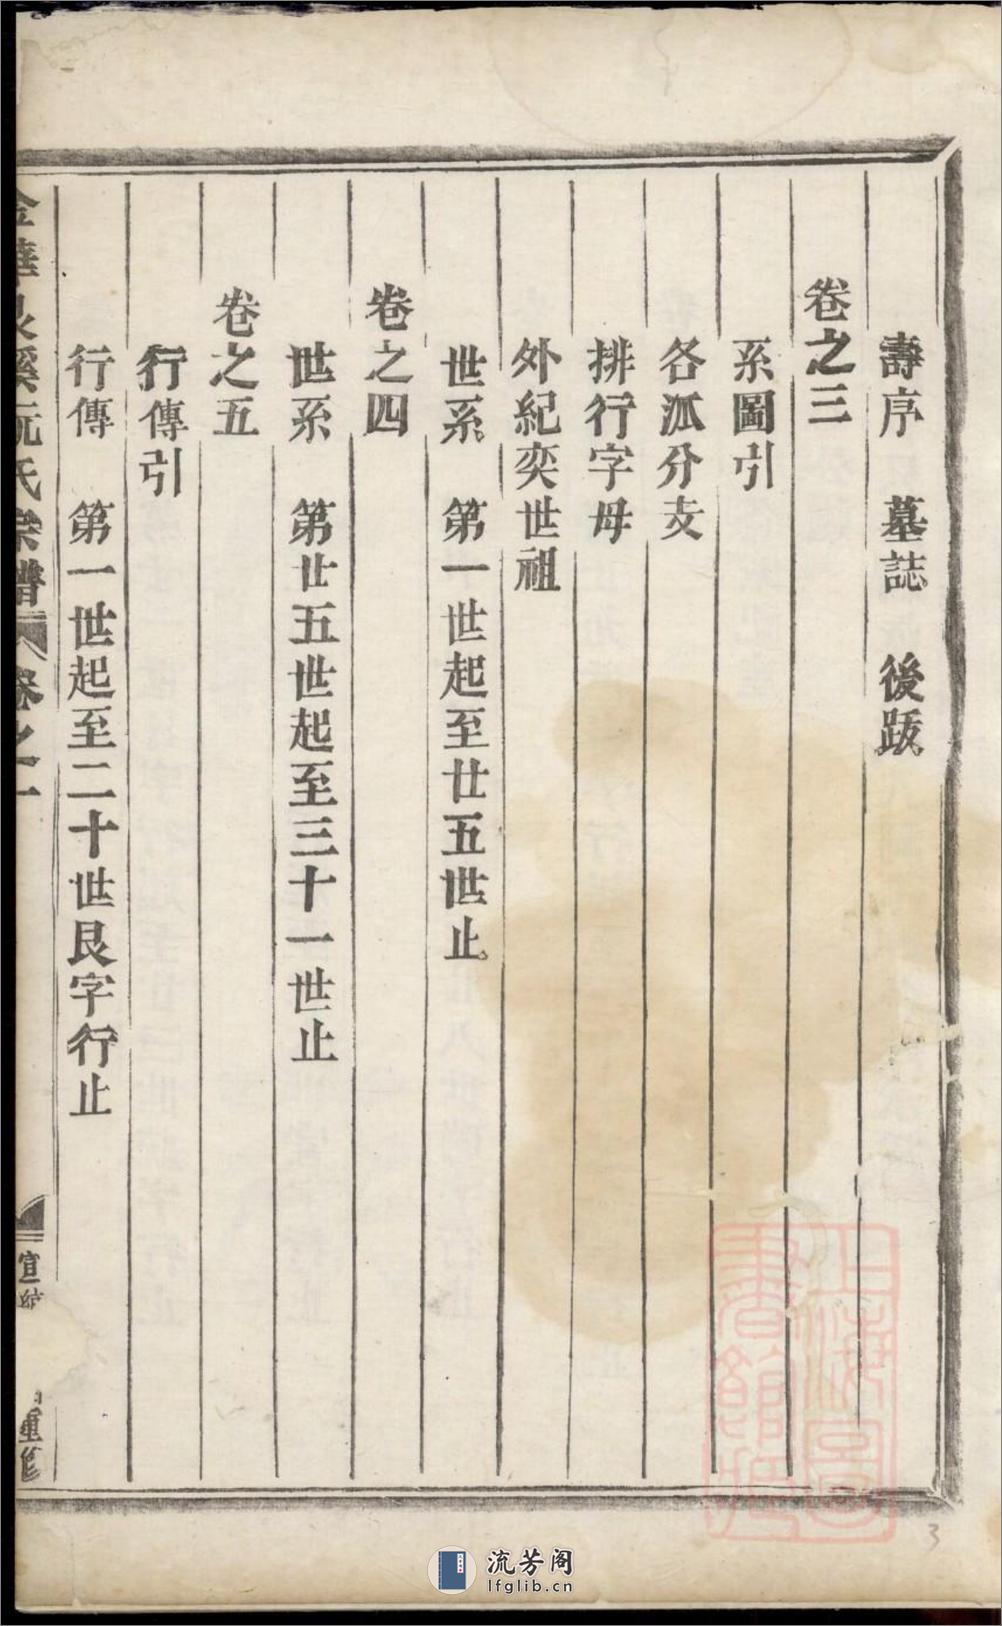 壽序 墓誌 後跋
卷之三
系圖引
各派分支
排行字母
外紀奕世祖
世系 第一世起至廿五世止
卷之四
世系 第廿五世起至三十一世止
卷之五
行傳引
行傳 第一世起至二十世艮字行止
金華泉溪阮氏宗譜 卷之一
宣統 重修
上海圖書館藏
3
流芳阁
lfglib.cn